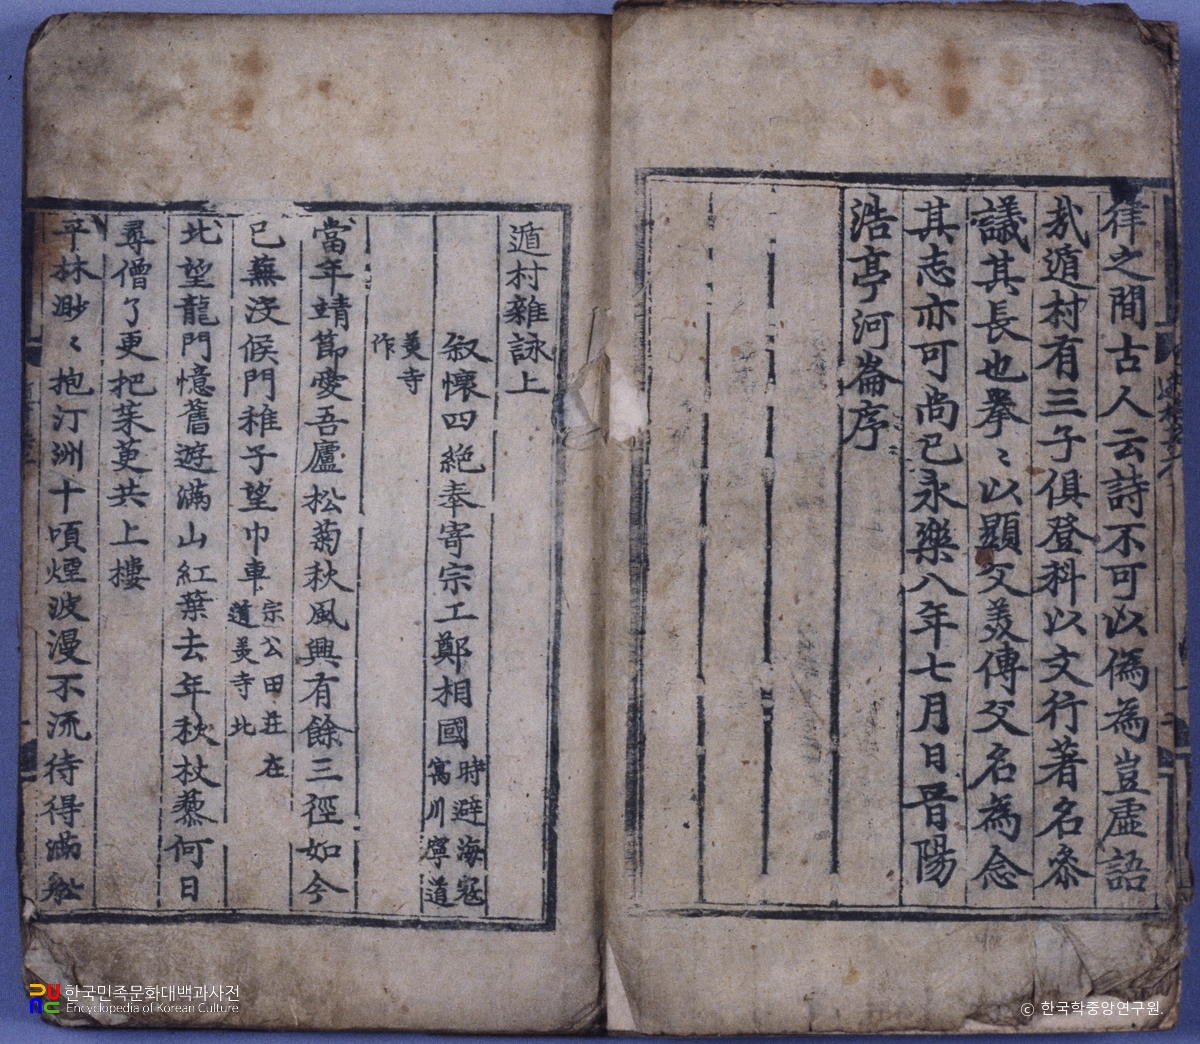 律之間古人云詩不可以偽為豈虛語
㢤遁村有三子俱登科以文行著名叅
議其長也拳〻以顯父美傳父名為念
其志亦可尚已永樂八年七月日晋陽
浩亭河崙序
遁村雜詠上
叙懷四絶奉寄宗工鄭相國
時避海寇
寓川寧道
美寺
作
當年靖節愛吾廬松菊秋風興有餘三徑如今
已蕪没候門稚子望巾車
宗公田莊在
道美寺北
北望龍門憶舊遊滿山紅葉去年秋杖藜何日
尋僧了更把茱萸共上樓
平林渺〻抱汀洲十頃煙波漫不流待得滿船
한국민족문화대백과사전
Encyclopedia of Korean Culture
ⓒ 한국학중앙연구원.